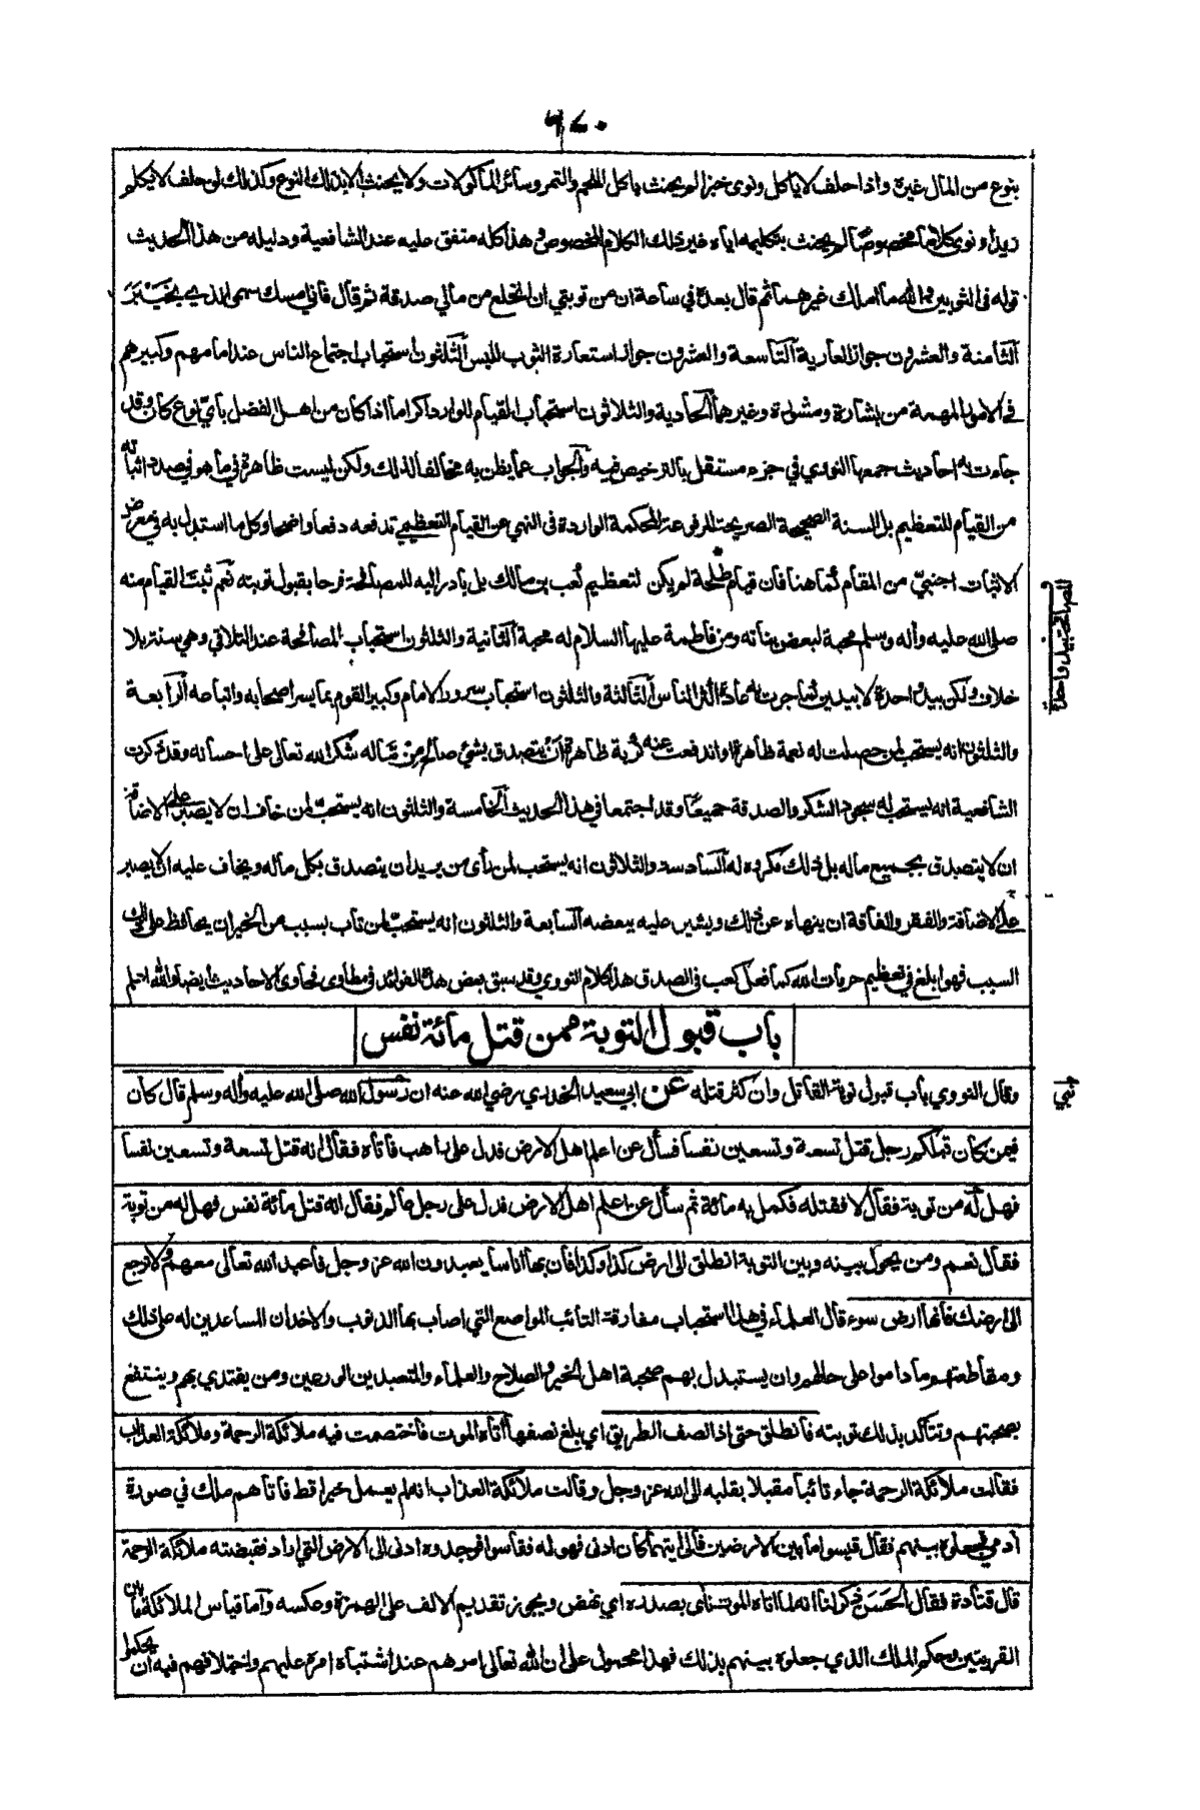 ٦٨٠
بنوع من المال غيره واذا حلف لا ياكل ونوى خبزا لم يحنث باكل اللحم والتمر وسائر المأكولات ولا يحنث الا بذلك النوع وكذلك لو حلف لا يكلم
زيدا ونوى كلاما مخصوصا لم يحنث بتكليمه اياه غير ذلك الكلام المخصوص وهذا كله متفق عليه عند الشافعية ودليله من هذا الحديث
قوله في الثوبين والله ما املك غيرهما ثم قال بعده في ساعة ان من توبتي ان انخلع من مالي صدقة ثم قال فاني امسك سهمي الذي بخيبر
الثامنة والعشرون جواز العارية التاسعة والعشرون جواز استعارة الثوب للبس الثلثون استحباب اجتماع الناس عند امامهم وكبيرهم
في الامور المهمة من بشارة ومشورة وغيرهما الحادية والثلاثون استحباب القيام للوارد اكراما اذا كان من اهل الفضل باي نوع كان وقد
جاءت به احاديث جمعها النووي في جزء مستقل بالترخيص فيه والجواب عما يظن به مخالفا لذلك ولكن ليست ظاهرة في ما هو في صدد اثباته
من القيام للتعظيم بل السنة الصحيحة الصريحة المرفوعة المحكمة الواردة في النهي عن القيام التعظيمي تدفعه دفعا واضحا وكل ما استدل به في معرض
الاثبات اجنبي من المقام كما هنا فان قيام طلحة لم يكن لتعظيم كعب بن مالك بل بادر اليه للمصافحة فرحا بقبول توبته نعم ثبت القيام منه
صلى الله عليه وأله وسلم محبة لبعض بناته ومن فاطمة عليها السلام له محبة الثانية والثلثون استحباب المصافحة عند التلاقي وهي سنة بلا
خلاف ولكن بيد واحدة لا بيدين كما جرت به عادة اكثر الناس الثالثة والثلثون استحباب سرور الامام وكبير القوم بما يسر اصحابه واتباعه الرابعة
والثلثون انه يستحب لمن حصلت له نعمة ظاهرة او اندفعت عنه كربة ظاهرة ان يتصدق بشئ صالح من ماله شكرا لله تعالى على احسانه وقد ذكرت
الشافعية انه يستحب له سجود الشكر والصدقة جميعا وقد اجتمعا في هذا الحديث الخامسة والثلثون انه يستحب لمن خاف ان لا يصبر على الاضاقة
ان لا يتصدق بجميع ماله بل ذلك مكروه له السادسة والثلاثون انه يستحب لمن رأى من يريد ان يتصدق بكل ماله ويخاف عليه ان لا يصبر
على الاضاقة والفقر والفاقة ان ينهاه عن ذلك ويشير عليه ببعضه السابعة والثلثون انه يستحب لمن تاب بسبب من الخير ان يحافظ على ذلك
السبب فهو ابلغ في تعظيم حرمات الله كما فعل كعب في الصدق هذا كلام النووي وقد سبق بعض هذه الفوائد في مطاوي فحاوى الاحاديث ايضا والله اعلم
باب قبول التوبة ممن قتل مائة نفس
وقال النووي باب قبول توبة القاتل وان كثر قتله عن ابي سعيد الخدري رضي الله عنه ان رسول الله صلى الله عليه وأله وسلم قال كان
فيمن كان قبلكم رجل قتل تسعة وتسعين نفسا فسأل عن اعلم اهل الارض فدل على راهب فاتاه فقال انه قتل تسعة وتسعين نفسا
فهل له من توبة فقال لا فقتله فكمل به مائة ثم سأل عن اعلم اهل الارض فدل على رجل عالم فقال انه قتل مائة نفس فهل له من توبة
فقال نعم ومن يحول بينه وبين التوبة انطلق الى ارض كذا وكذا فان بها اناسا يعبدون الله عز وجل فاعبد الله تعالى معهم ولا ترجع
الى ارضك فانها ارض سوء قال العلماء في هذا استحباب مفارقة التائب المواضع التي اصاب بها الذنوب والاخدان المساعدين له على ذلك
ومقاطعتهم ما داموا على حالهم وان يستبدل بهم صحبة اهل الخير والصلاح والعلماء والمتعبدين الورعين ومن يقتدي بهم وينتفع
بصحبتهم وتتأكد بذلك توبته فانطلق حتى اذا نصف الطريق اي بلغ نصفها أتاه الموت فاختصمت فيه ملائكة الرحمة وملائكة العذاب
فقالت ملائكة الرحمة جاء تائبا مقبلا بقلبه الى الله عز وجل وقالت ملائكة العذاب انه لم يعمل خيرا قط فاتاهم ملك في صورة
أدمي فجعلوه بينهم فقال قيسوا ما بين الارضين فالى ايتهما كان ادنى فهو له فقاسوا فوجدوه ادنى الى الارض التي اراد فقبضته ملائكة الرحمة
قال قتادة فقال الحسن ذكر لنا انه لما اتاه الموت نأى بصدره اي نهض ويجوز تقديم الالف على الهمزة وعكسه وأما قياس الملائكة ما بين
القريتين وحكم الملك الذي جعلوه بينهم بذلك فهذا محمول على ان الله تعالى امرهم عند اشتباه امره عليهم واختلافهم فيه ان يحكموا
المصافحة بيد واحدة